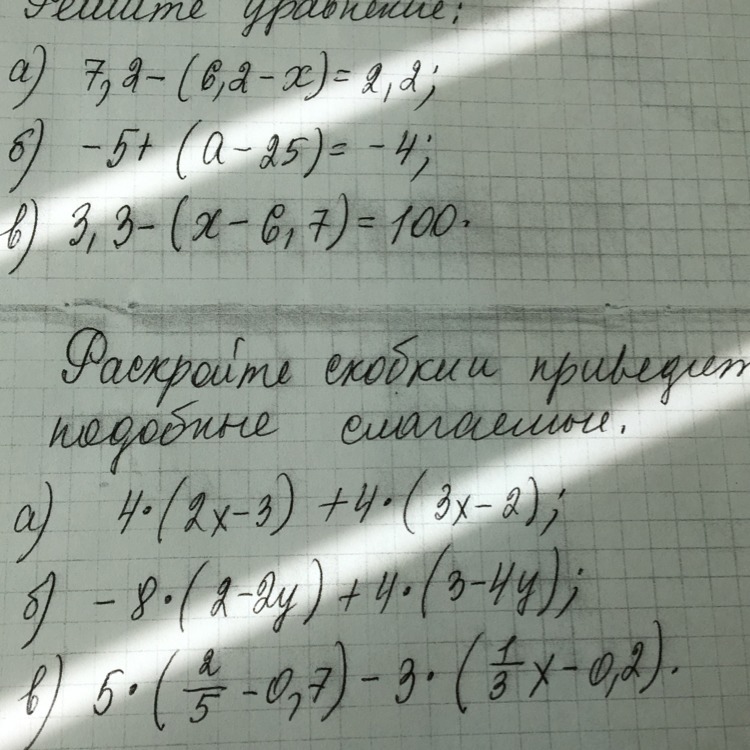 Решите уравнение:
а) 7,2-(6,2-x)=2,2;
б) -5+(a-25)=-4;
в) 3,3-(x-6,7)=100.
Раскройте скобки и приведит
подобные слагаемые.
а) 4·(2x-3)+4·(3x-2);
б) -8·(2-2y)+4·(3-4y);
в) 5·(2/5-0,7)-3·(1/3x-0,2).